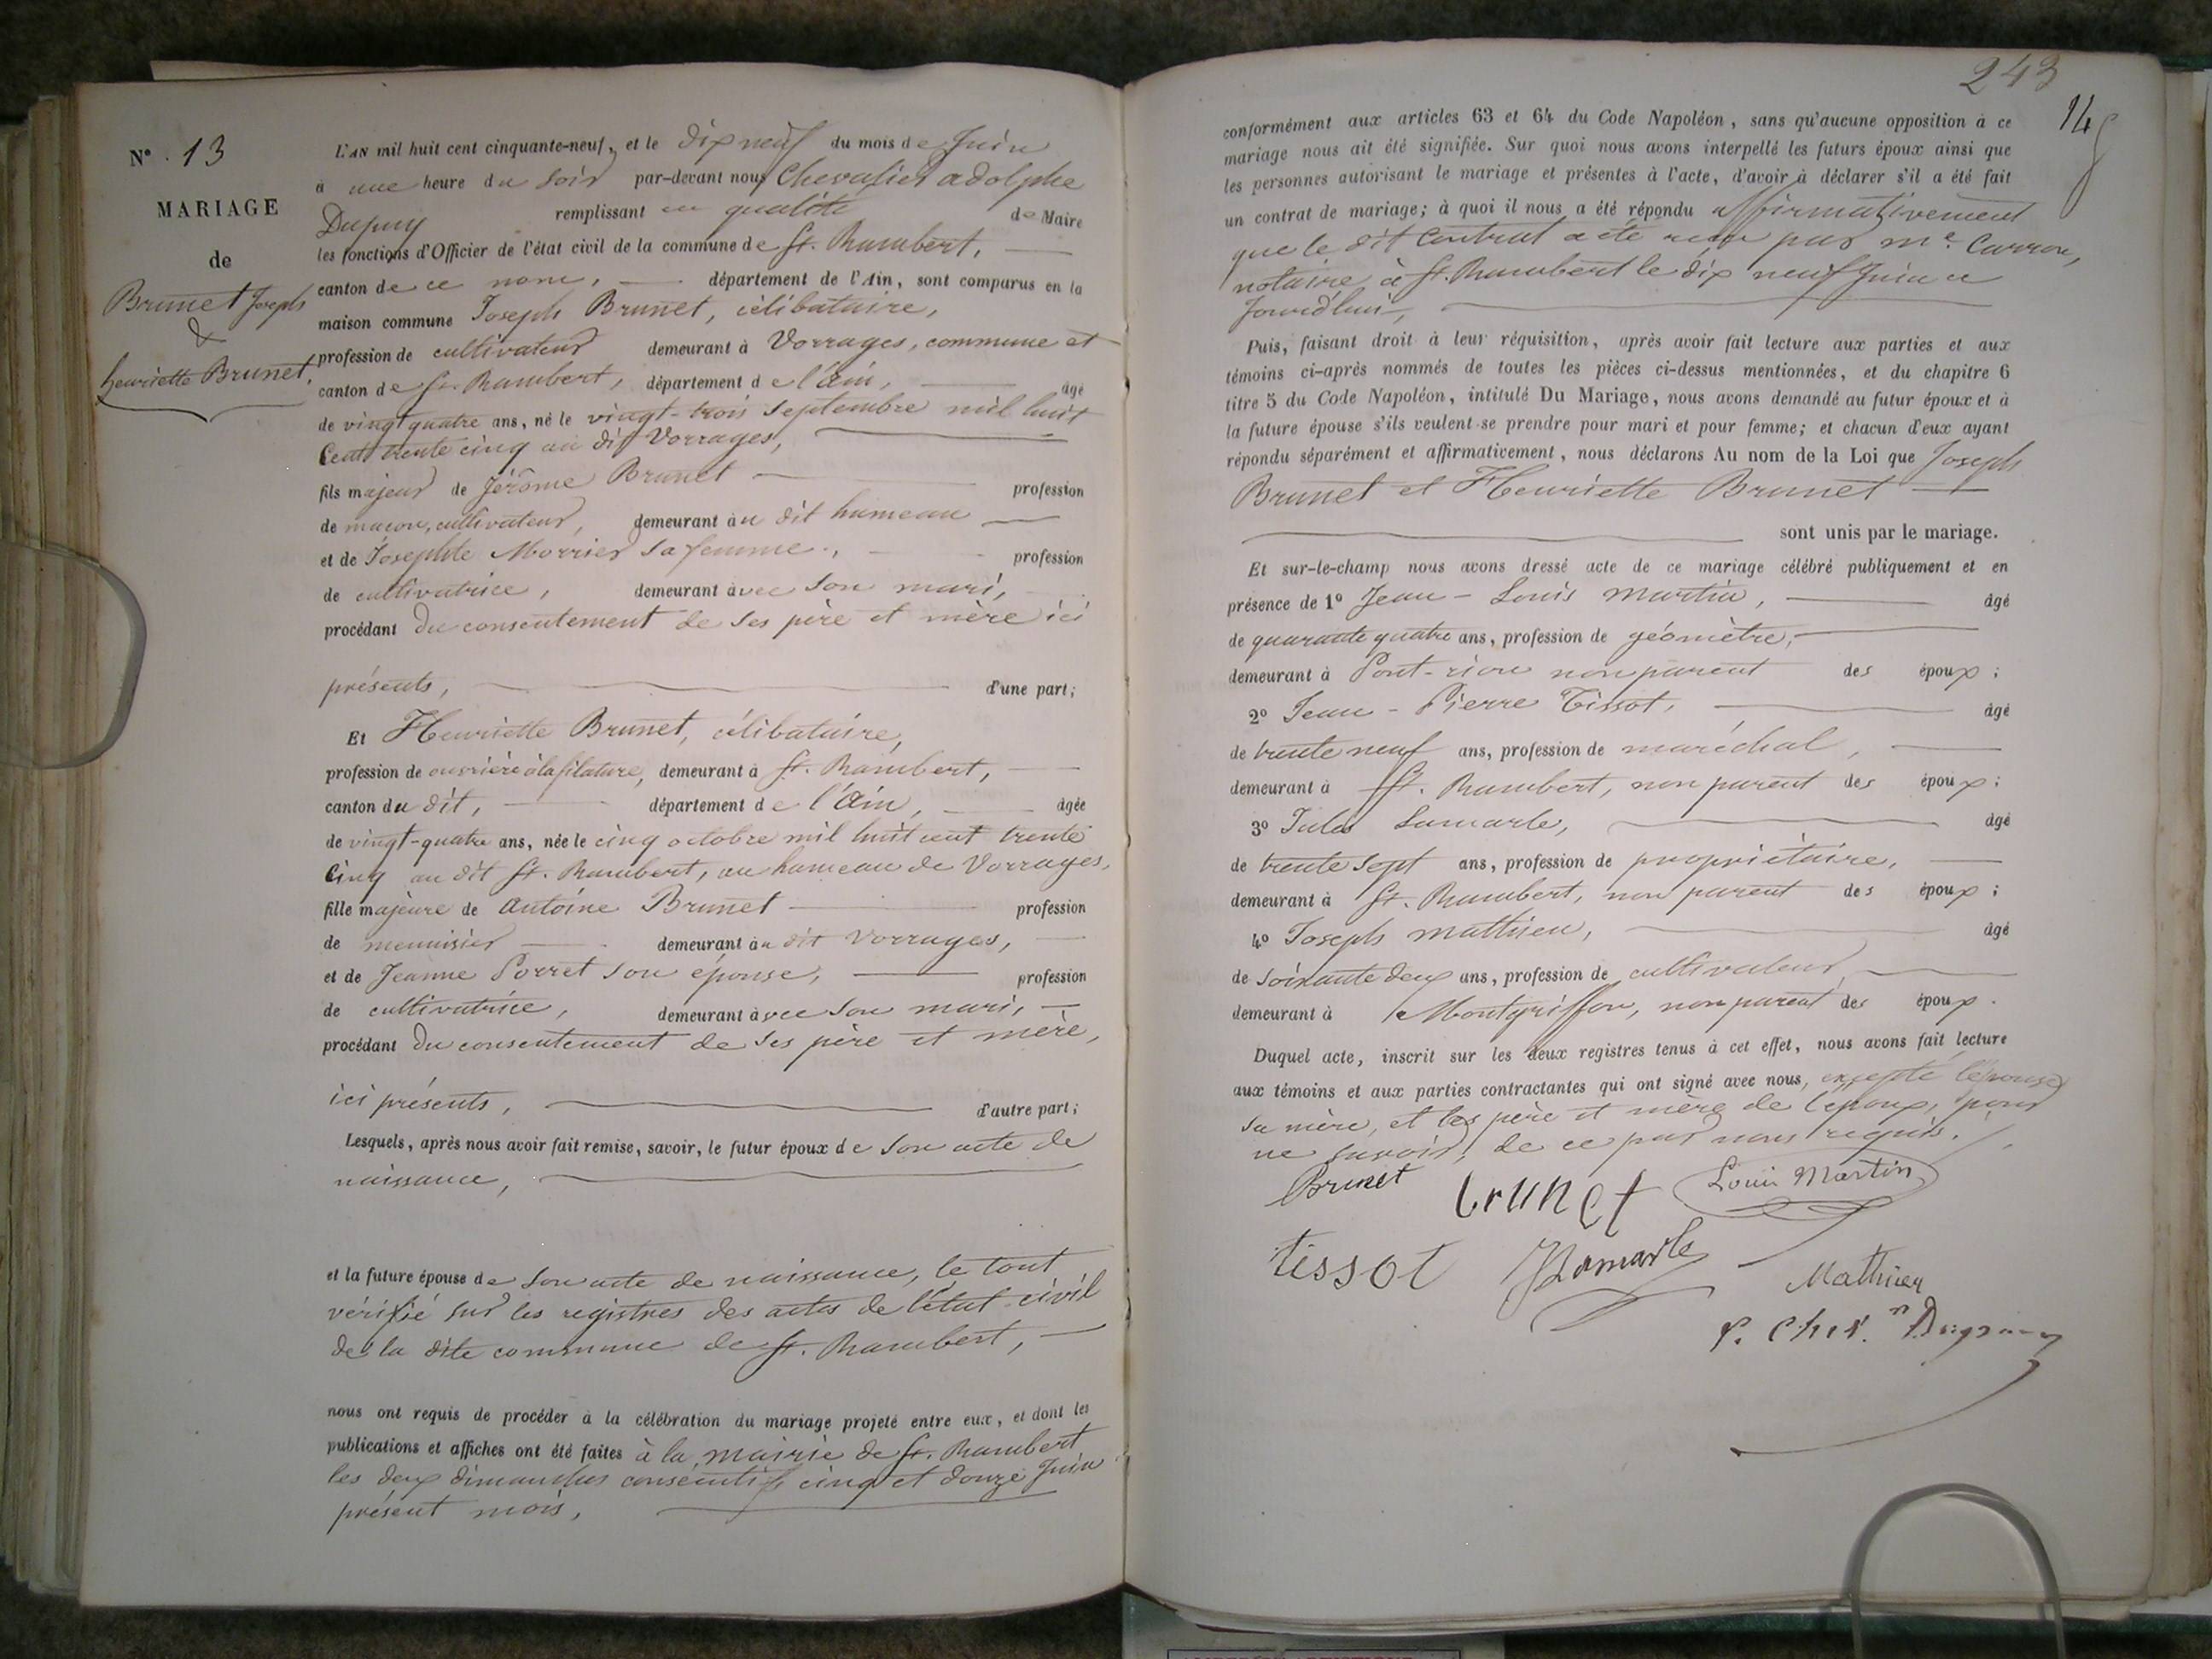 N° 13
MARIAGE
de
Brunet Joseph
&
henriette Brunet,
L'AN mil huit cent cinquante-neuf, et le dix neuf du mois de Juin
à une heure du soir par-devant nous Chevalier adolphe
Dupuy remplissant en qualité de Maire
les fonctions d'Officier de l'état civil de la commune de St. Rambert,
canton de ce nom, département de l'Ain, sont comparus en la
maison commune Joseph Brunet, célibataire,
profession de cultivateur demeurant à Vorrages, commune et
canton de St. Rambert, département de l'Ain, âgé
de vingt quatre ans, né le vingt-trois septembre mil huit
Cent trente cinq au dit Vorrages,
fils majeur de Jérôme Brunet profession
de maçon, cultivateur, demeurant au dit hameau
et de Josephte Morrier sa femme, profession
de cultivatrice, demeurant avec son mari,
procédant du consentement de ses père et mère ici
présents, d'une part;
Et Henriette Brunet, célibataire,
profession de ouvrière à la filature, demeurant à St. Rambert,
canton du dit, département de l'Ain, âgée
de vingt-quatre ans, née le cinq octobre mil huit cent trente
Cinq au dit St. Rambert, au hameau de Vorrages,
fille majeure de antoine Brunet profession
de menuisier demeurant au dit Vorrages,
et de Jeanne Porret son épouse, profession
de cultivatrice, demeurant avec son mari,
procédant du consentement de ses père et mère,
ici présents, d'autre part;
Lesquels, après nous avoir fait remise, savoir, le futur époux de son acte de
naissance,
et la future épouse de son acte de naissance, le tout
vérifié sur les registres des actes de l'état civil
de la dite commune de St. Rambert,
nous ont requis de procéder à la célébration du mariage projeté entre eux, et dont les
publications et affiches ont été faites à la mairie de St. Rambert
les deux dimanches consécutifs cinq et douze Juin
présent mois,
243
149
conformément aux articles 63 et 64 du Code Napoléon, sans qu'aucune opposition à ce
mariage nous ait été signifiée. Sur quoi nous avons interpellé les futurs époux ainsi que
les personnes autorisant le mariage et présentes à l'acte, d'avoir à déclarer s'il a été fait
un contrat de mariage; à quoi il nous a été répondu affirmativement
que le dit Contrat a été reçu par me. Carron,
notaire à St. Rambert le dix neuf Juin ce
Jourd'hui,
Puis, faisant droit à leur réquisition, après avoir fait lecture aux parties et aux
témoins ci-après nommés de toutes les pièces ci-dessus mentionnées, et du chapitre 6
titre 5 du Code Napoléon, intitulé Du Mariage, nous avons demandé au futur époux et à
la future épouse s'ils veulent se prendre pour mari et pour femme; et chacun d'eux ayant
répondu séparément et affirmativement, nous déclarons Au nom de la Loi que Joseph
Brunet et Henriette Brunet
sont unis par le mariage.
Et sur-le-champ nous avons dressé acte de ce mariage célébré publiquement et en
présence de 1° Jean-Louis Martin, âgé
de quarante quatre ans, profession de géomètre,
demeurant à Pont-rion non parent des époux;
2° Jean-Pierre Tissot, âgé
de trente neuf ans, profession de maréchal,
demeurant à St. Rambert, non parent des époux;
3° Jules Lamarle, âgé
de trente sept ans, profession de propriétaire,
demeurant à St. Rambert, non parent des époux;
4° Joseph mathieu, âgé
de soixante deux ans, profession de cultivateur
demeurant à Montgriffon, non parent des époux.
Duquel acte, inscrit sur les deux registres tenus à cet effet, nous avons fait lecture
aux témoins et aux parties contractantes qui ont signé avec nous, excepté l'épouse
sa mère, et les père et mère de l'époux, pour
ne savoir, de ce par nous requis.
Brunet brunet Louis Martin
tissot JLamarle
Mathieu
Dupuy